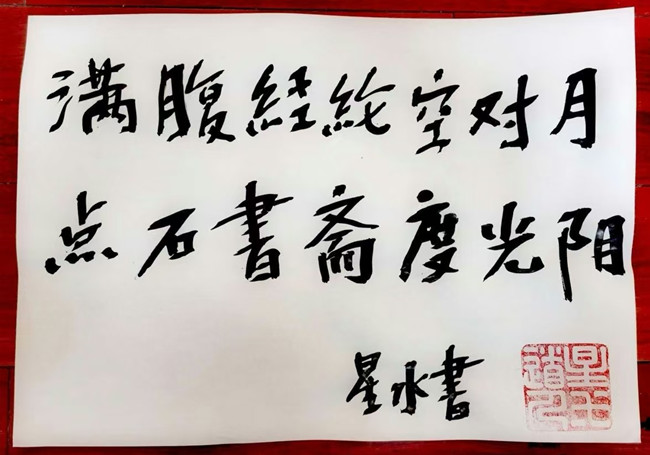 满腹经纶空对月
点石書斋度光阴
星水書